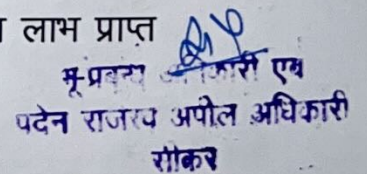 लाभ प्राप्त
भू-प्रबन्ध अधिकारी एवं
पदेन राजस्व अपील अधिकारी
सीकर